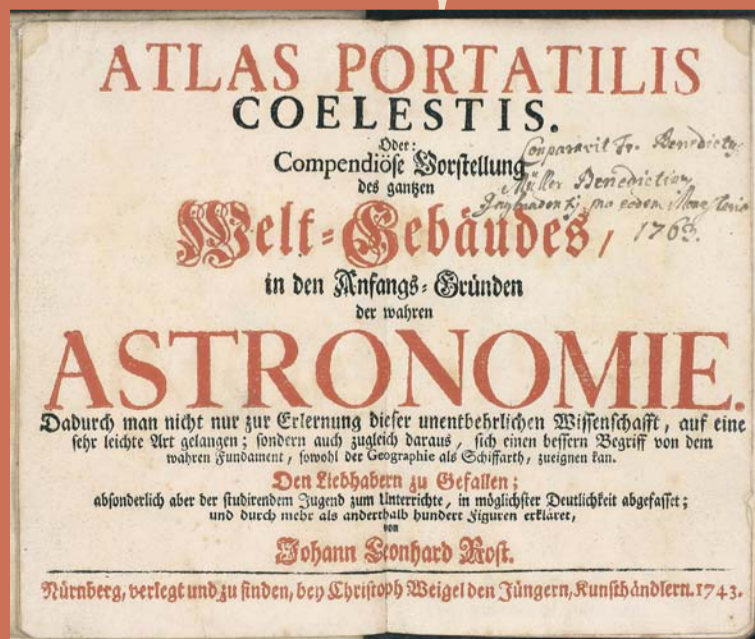 ATLAS PORTATILIS
COELESTIS.
Oder:
Compendiöse Vorstellung
des gantzen
Welt-Gebäudes,
in den Anfangs-Gründen
der wahren
ASTRONOMIE.
Dadurch man nicht nur zur Erlernung dieser unentbehrlichen Wissenschafft, auf eine
sehr leichte Art gelangen; sondern auch zugleich daraus, sich einen bessern Begriff von dem
wahren Fundament, sowohl der Geographie als Schiffarth, zueignen kan.
Den Liebhabern zu Gefallen;
absonderlich aber der studirendem Jugend zum Unterrichte, in möglichster Deutlichkeit abgefasset;
und durch mehr als anderthalb hundert Figuren erkläret,
von
Johann Leonhard Rost.
Nürnberg, verlegt und zu finden, bey Christoph Weigel den Jüngern, Kunsthändlern. 1743.
Comparavit Fr. Benedictus
Müller Benedictinus
pro eodem Monasterio
1763.